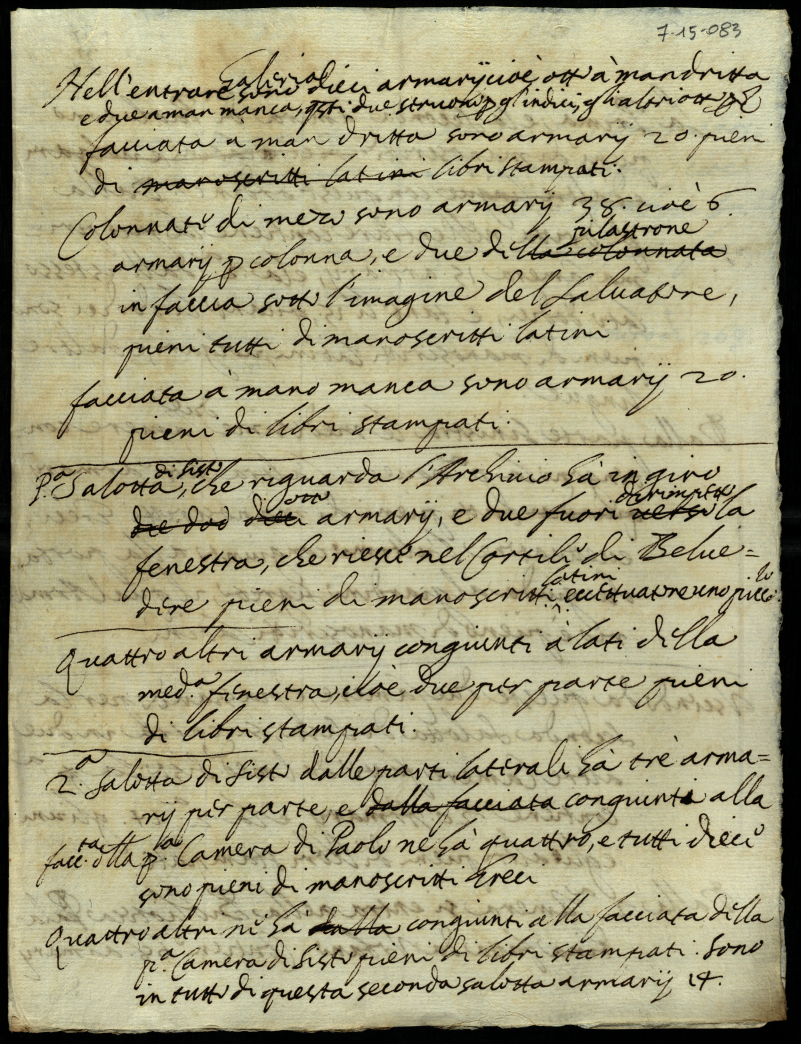 7-15-083
Nell'entrare galeria sono dieci armarij cioè otto à man dritta
e due a man manca, q.sti due struoni p gl'indici, gli altri otto
facciata à man dritta sono armarij 20. pieni
di manoscritti latini libri stampati.
Colonnate di mezo sono armarij 38. cioè 6
armarij p colonna, e due della colonnata pilastrone
in faccia sotto l'imagine del Salvatore,
pieni tutti di manoscritti latini
facciata à mano manca sono armarij 20.
pieni di libri stampati.
P.a Salotta di Sisto, che riguarda l'Archivio hà in giro
dieci otto armarij, e due fuori verso dirimpetto la
fenestra, che riesce nel Cortile di Belue=
dere pieni di manoscritti latini eccettuatone uno picc.lo
Quattro altri armarij congiunti à lati della
med.a fenestra, cioè due per parte pieni
di libri stampati.
2.a Salotta di Sisto dalle parti laterali hà trè arma=
rij per parte, e dalla facciata congiunti alla
facc.ta della p.a Camera di Paolo ne hà quattro, e tutti dieci
sono pieni di manoscritti Greci
Quattro altri ne hà dalla congiunti alla facciata della
p.a Camera di Sisto pieni di libri stampati. Sono
in tutto di questa seconda salotta armarij 14.